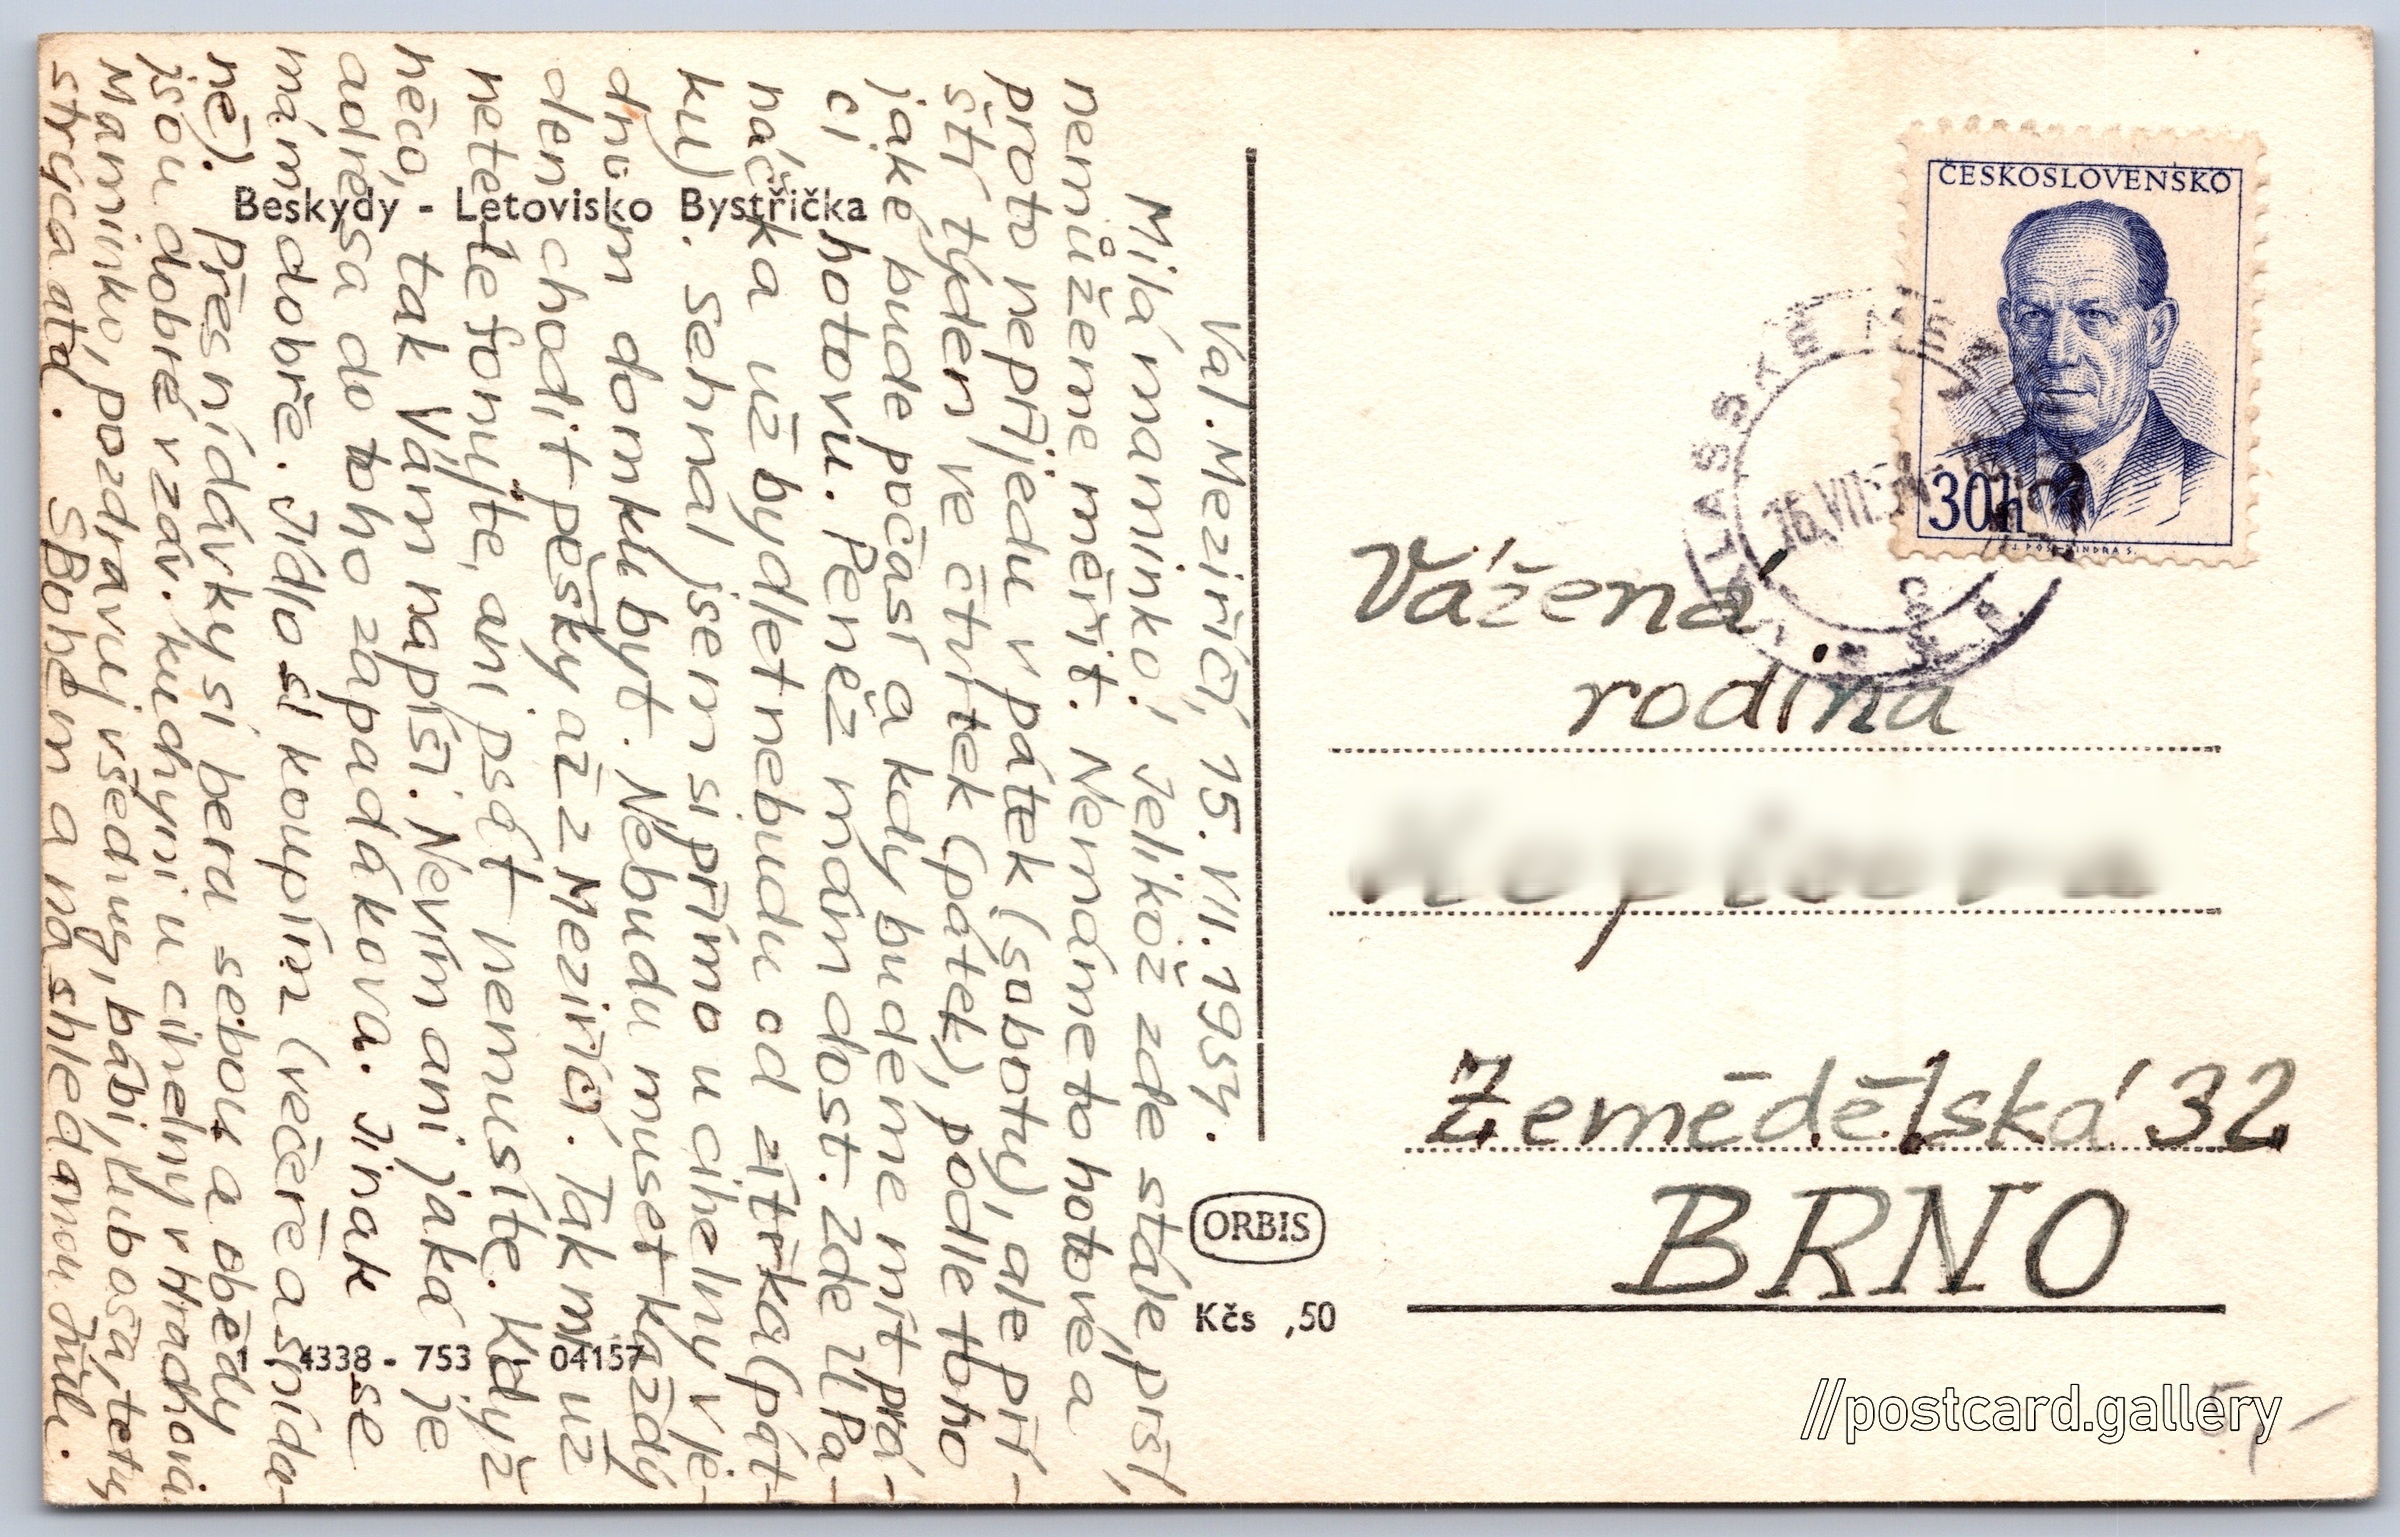 Beskydy - Letovisko Bystřička
Val. Meziříčí, 15. VII. 1954.
Milá maminko! Jelikož zde stále prší,
nemůžeme měřit. Nemáme to hotové a
proto nepřijedu v pátek (sobotu), ale pří-
ští týden ve čtvrtek (pátek), podle toho
jaké bude počasí a kdy budeme mít prá-
ci hotovu. Peněz mám dost. Zde u Pa-
náčka už bydlet nebudu od zítřka (pát-
ku). Sehnal jsem si přímo u cihelny v je-
dnom domku byt. Nebudu muset každý
den chodit pěšky až z Meziříčí. Tak mi už
netelefonujte, ani psát nemusíte. Když
něco, tak Vám napíši. Nevím ani jaká je
adresa do toho zapadákova. Jinak se
mám dobře. Jídlo si koupím (večeře a snída-
ně). Přesnídávky si beru sebou a obědy
jsou dobré v záv. kuchyni u cihelny v Hrachovci
Maminko, pozdravuj všechny, babi, Luboša, tety
strýca atd. S Bohem a na shledanou
1 - 4338 - 753 - 04157
ORBIS
Kčs ,50
ČESKOSLOVENSKO
30h
Vážená
rodina
Zemědělská 32
BRNO
5,-
//postcard.gallery